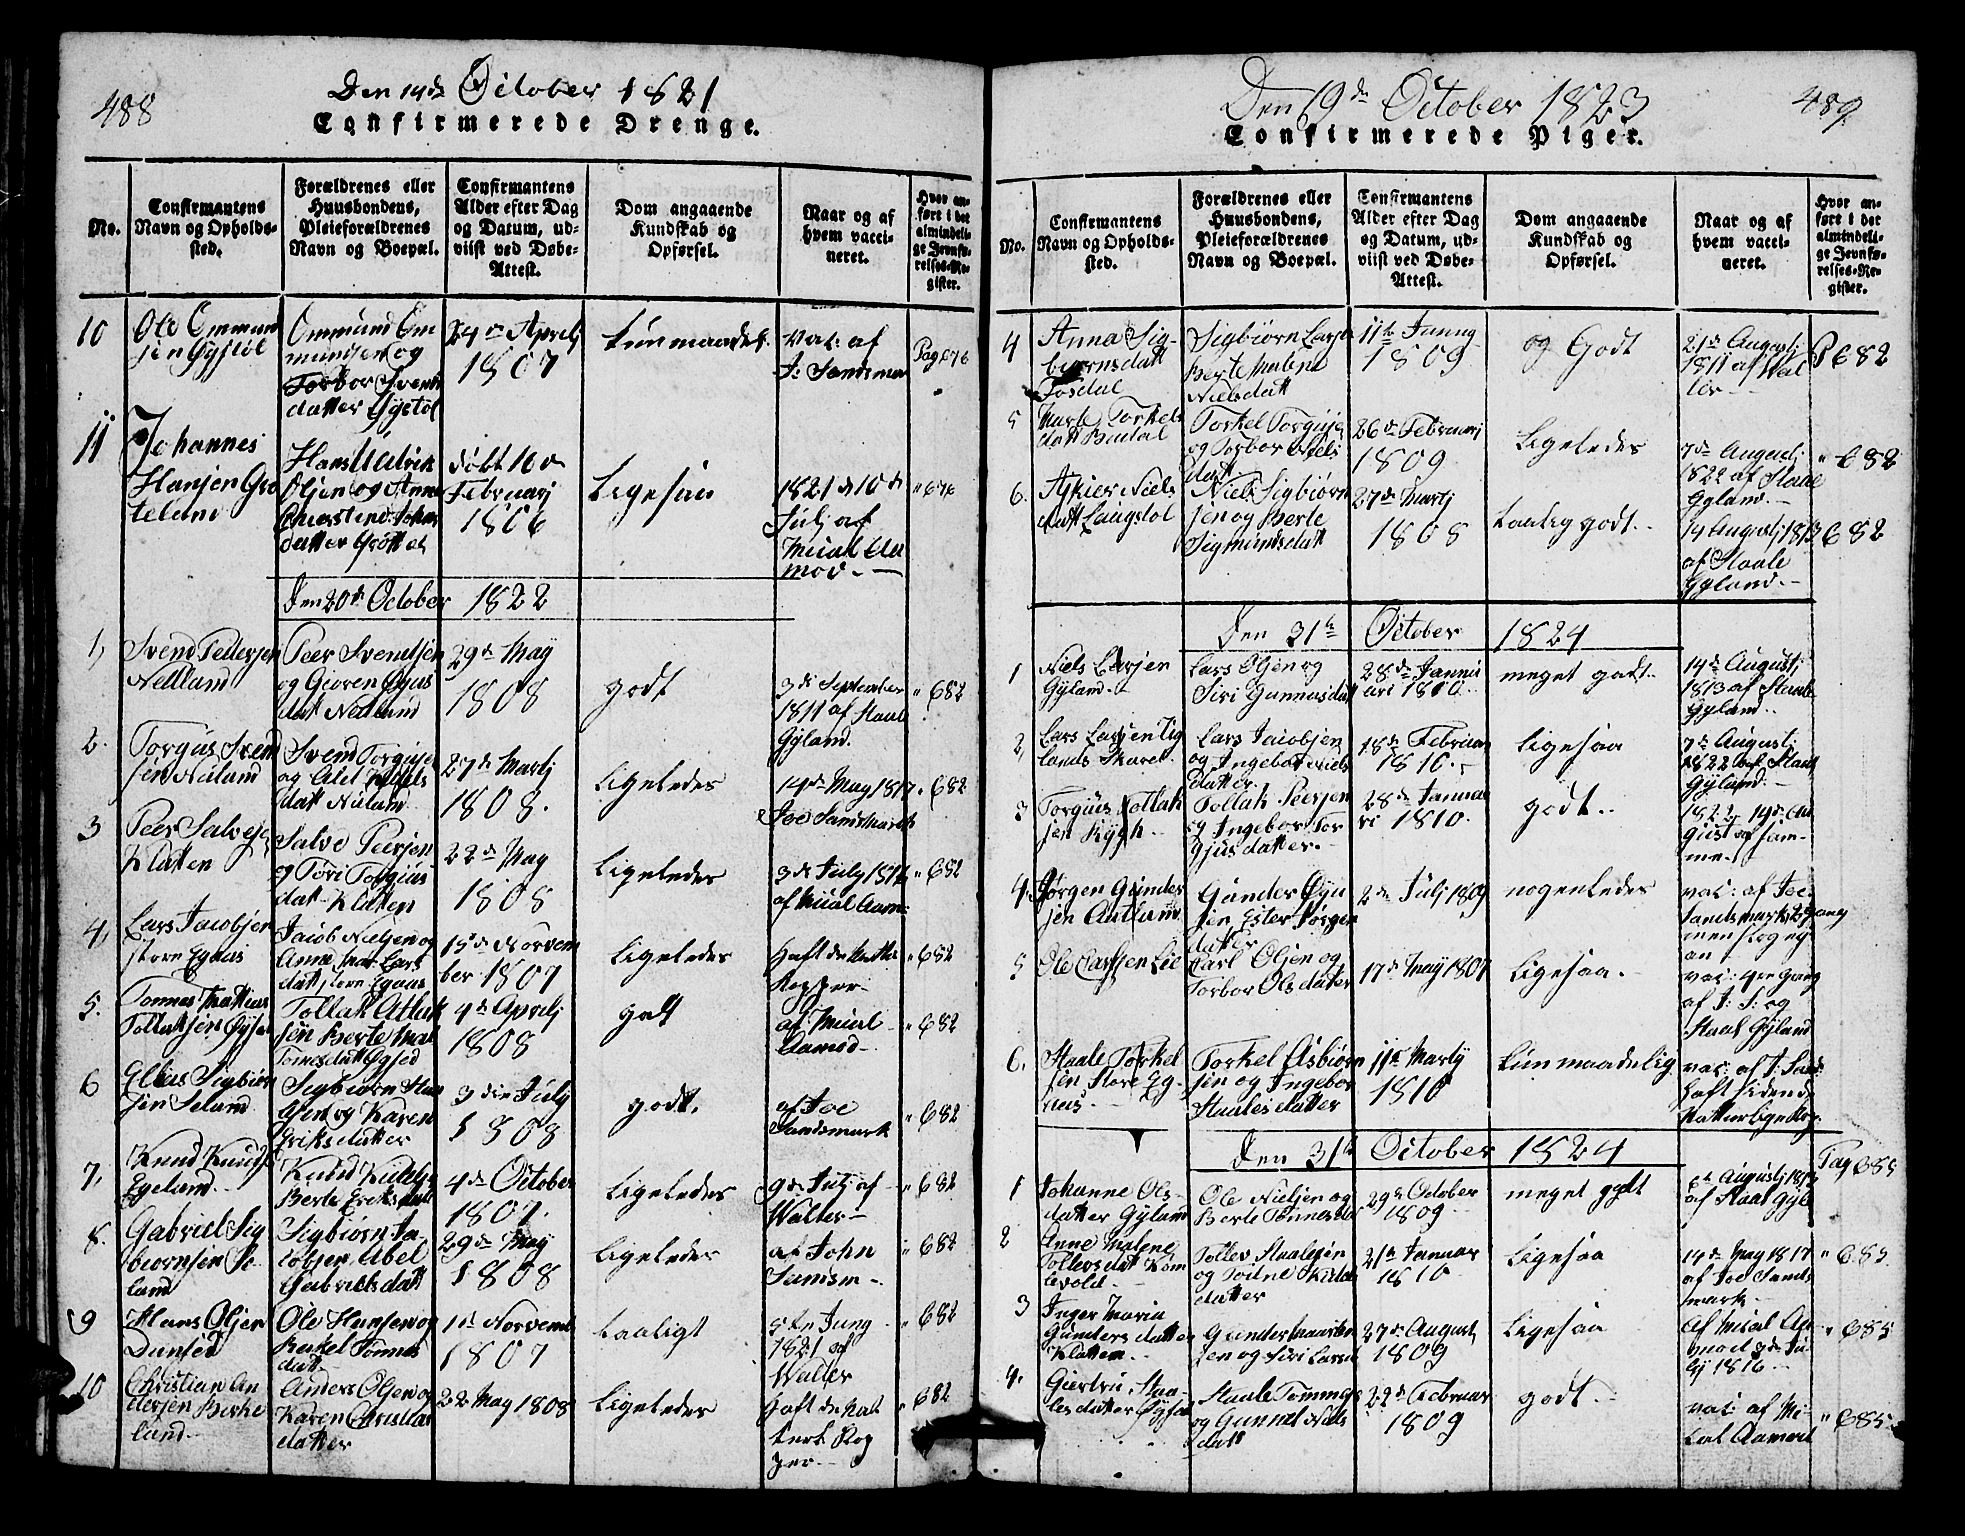 488
Den 14de October 1821
Confirmerede Drenge.
No.
Confirmantens
Navn og Opholds-
sted.
Forældrenes eller
Huusbondens,
Pleieforældrenes
Navn og Boepæl.
Confirmantens
Alder efter Dag
og Datum, ud-
viist ved Døbe-
Attest.
Dom angaaende
Kundskab og
Opførsel.
Naar og af
hvem vacci-
neret.
Hvor an-
ført i det
almindeli-
ge Jevnfø-
relses-Re-
gister.
10
Ole Ommund
sen
Ommund Om
mundsen og
Torbor Svens
datter
24de Aprilj
1807
Vac: af
J: Sandsmark
Pag 676
11
Johannes
Hansen Grø
teland
Hans Uldrik
Olsen og Anne
datter
Født 16de
Februarj
1806
Ligesaa
1821 d 10de
Julj af
Mical Aa
mod.
" 676
Den 20de October 1822
1,
Svend Pettersen
Netland
Peer Svendsen
og Gioren
datt Netland
29de May
1808
godt
3de September
1811 af Staale
Gyland.
" 682
2.
Torgus Svend
sen
Svend Torgusen
og
datt
27de Martj
1808.
Ligeledes
14de May 1817
Joe Sandsmark
" 682
3
Peer Salvesen
Klatten
Salve Peersen
og Tori Torgius
datt Klatten
22de May
1808
Ligeledes
3de July 1816
af Mical Aam:
" 682
4,
Lars Jacobsen
store Egeaas
Jacob Nielsen og
Anne Mar. Lars
datt store Egaas
15de Novem
ber 1807
Ligeledes
Haft de
Kopper
" 682
5.
Tonnes Mathias
Tollaksen
Tollak Atlak
sen Berte Mal
Tonnesdatt
4de Aprilj
1808
godt
af Mical
Aamod
" 682
6
Elias Sigbiørn
sen Seland
Sigbiørn
og Karen
Eriksdatter
3die July
1808
godt.
af Joe
Sandsmark
" 682
7,
Knud Knuds
Egeland
Knud
Berte Eriksdatt
4de October
1807.
Ligeledes
9de Julj af
Walter
" 682
8.
Gabriel Sig
biornsen Se
land
Sigbiørn Ja
cobsen Abel
Gabrielsdatt
29de May
1808
Ligeledes
af John
Sandsm
" 682
9
Hans Olsen
Ole Hansen og
Rakel Tønnes
datt
1te Novemb
1807
Taaligt
5te Juny
1821 af
Walter
" 682
10
Christian An
dersen Birke
land
Anders Olsen og
Karen Christians
datter
22 May 1808
Ligeledes
Haft de nat
turl. Kop
per
" 682
Den 19de October 1823
489
Confirmerede Piger.
No.
Confirmantens
Navn og Opholds-
sted.
Forældrenes eller
Huusbondens,
Pleieforældrenes
Navn og Boepæl.
Confirmantens
Alder efter Dag
og Datum, ud-
viist ved Døbe-
Attest.
Dom angaaende
Kundskab og
Opførsel.
Naar og af
hvem vacci-
neret.
Hvor an-
ført i det
almindeli-
ge Jevnfø-
relses-Re-
gister.
4
Anna Sig-
biørnsdatt
Fosdal
Sigbiørn Larsen
Berte Malene
Nielsdatt
11te Junng
1809
og Godt
21de Augusti
1811 af Wal
ter
P 682
5
Marte Torkels
datt
Torkel Torgusen
og Torbor Ols
datt
26de Februarj
1809
Ligeledes
7de Augustj
1822 af Staale
Gyland.
" 682
6.
Niels
datt Laugstøl
Niels Sigbiørn
sen og Berte
Sigmundsdatt
27de Martj
1808
Taalig godt.
14 Augustj 1813
af Staale
Gyland.
682
Den 31te October 1824
1
Niels Larsen
Gyland.
Lars Olsen og
Siri Gunnusdatt
28de Janu
ari 1810.
meget godt.
14de Augustj
1813 af Staale
Gyland.
2,
Lars Larsen Lig
lands Skaret
Lars Jacobsen
og Ingebor Niels
datter
18de Februar
1810.
Ligesaa
7de Augustj
1822 af Staale
Gyland.
3
Torgius Tollak
sen Rygh
Tollak Peersen
og Ingebor Tor
gjusdatter.
28de Janua
ri 1810.
godt.
1822 14de Au
gust af sam-
me.
4.
Jørgen Gunder
sen Aatland
Gunder Øyu
sen Ester Jørgen
datter
2de Julj 1809
nogenledes
vac: af Joe
Sandsmark 2 gang
men slog ey
an
5
Ole Carlsen Lie
Carl Olsen og
Torbor Olsdatter
17de May 1807
Ligesaa.
vac: 4re Gang
af J: S: og
Staal Gyland
6.
Staale Torkel
sen Store Eg-
aas.
Torkel Asbiørn
sen og Ingebor
Staalesdatter
11te Martj
1810
Kun maadelig
vac: af J. Sand
Haft siden de
Naturlige Kop.
Den 31te October 1824
Pag 685
1
Johanne Ols-
datter Gyland
Ole Nielsen og
Berte Tønnesdat
29de October
1809
meget godt
6te Augustj 1813
af Staal Gyl.
2
Anne Malene
Tollevsdatt Kom
levold.
Tollev Staalesøn
og
datter
21de Januar
1810
Ligesaa
14de May 1817
af Joe Sands
mark
" 685
3
Inger Maria
Gundersdatter
Klatten
Gunder Mauritsen
sen og Siri Larsd
27de August
1809
Ligesaa
af Mical Aa-
mod 3de Ju
lj 1816
" 685
4.
Giertru Staa-
lesdatter
Staale Tommes
og Gunnel Niels
datt
22de Februar
1809
godt.
vac: af Mi-
cal Aamod
" 685